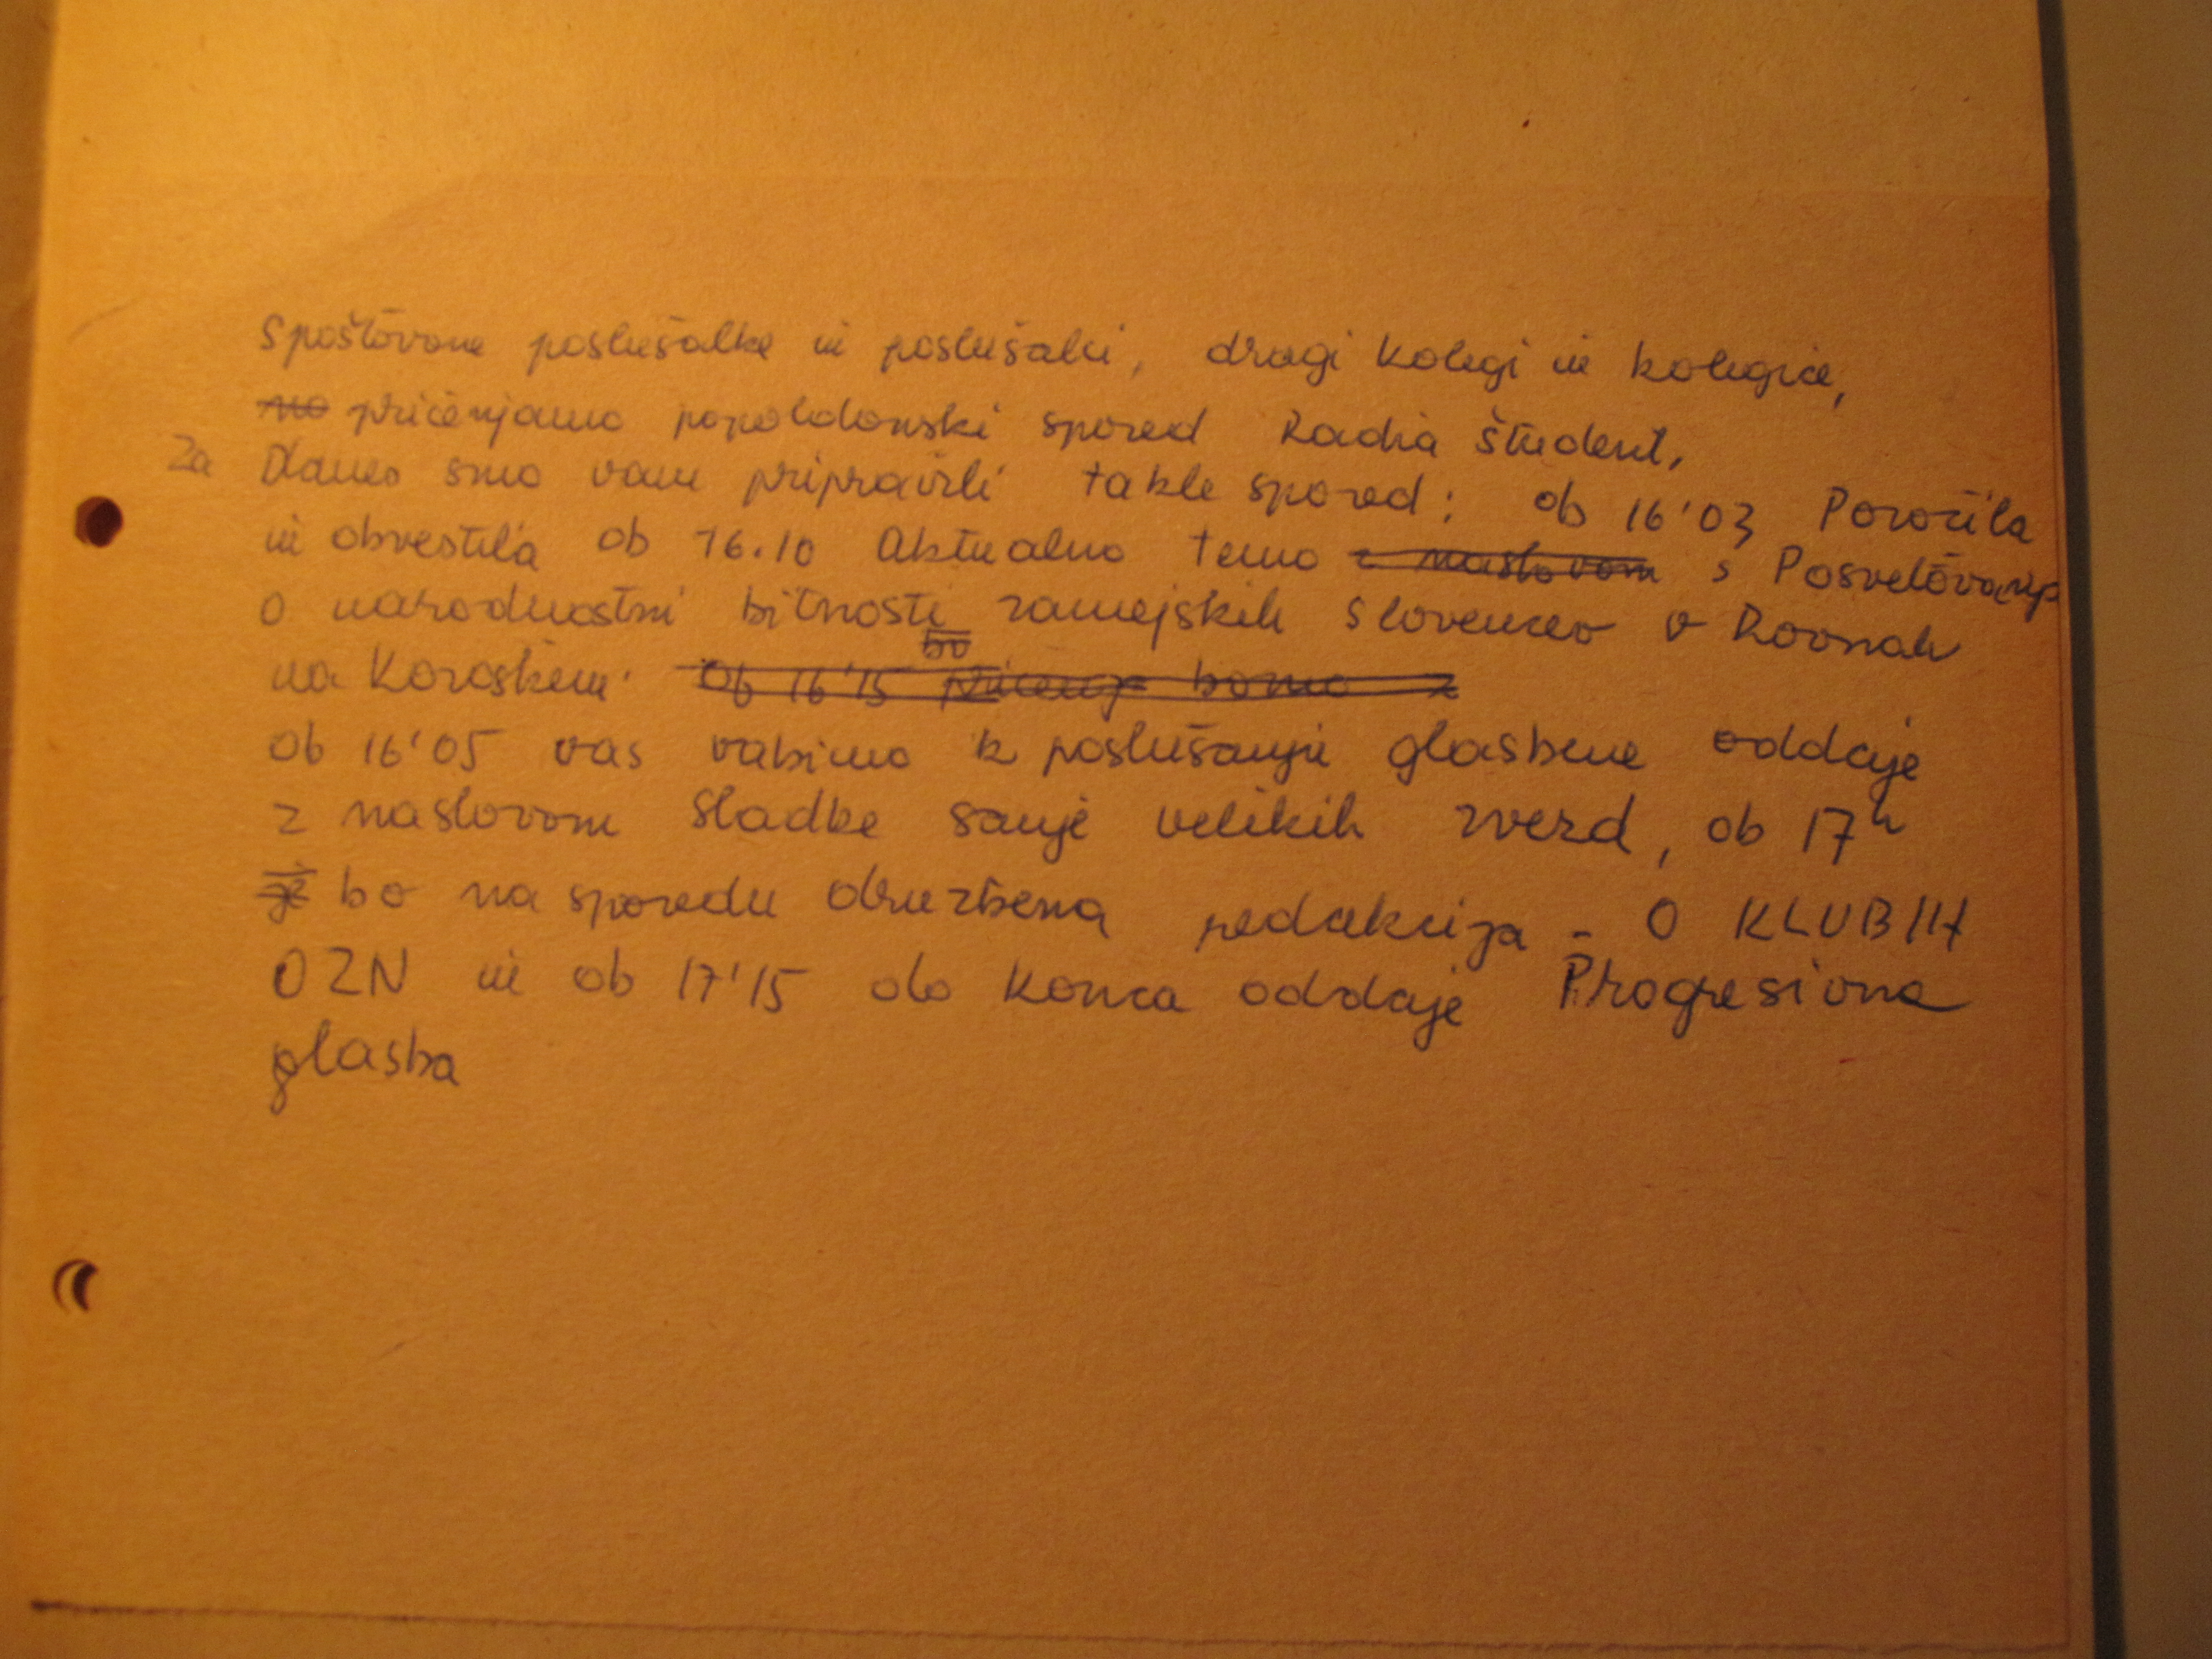 Spoštovane poslušalke in poslušalci, dragi kolegi in kolegice,
no pričenjamo popoldanski spored Radia Študent.
Za Danes smo vam pripravili takle spored: ob 16'03 Poročila
in obvestila ob 16.10 Aktualno temo z naslovom s Posvetovanja
o narodnostni bitnosti zamejskih Slovencev v Ravnah
bo
na Koroškem. Ob 16'15 bomo z
ob 16'05 vas vabimo k poslušanju glasbene oddaje
z naslovom Sladke sanje velikih zvezd, ob 17h
je bo na sporedu družbena redakcija - O KLUBIH
OZN in ob 17'15 do konca oddaje Progresivna
glasba